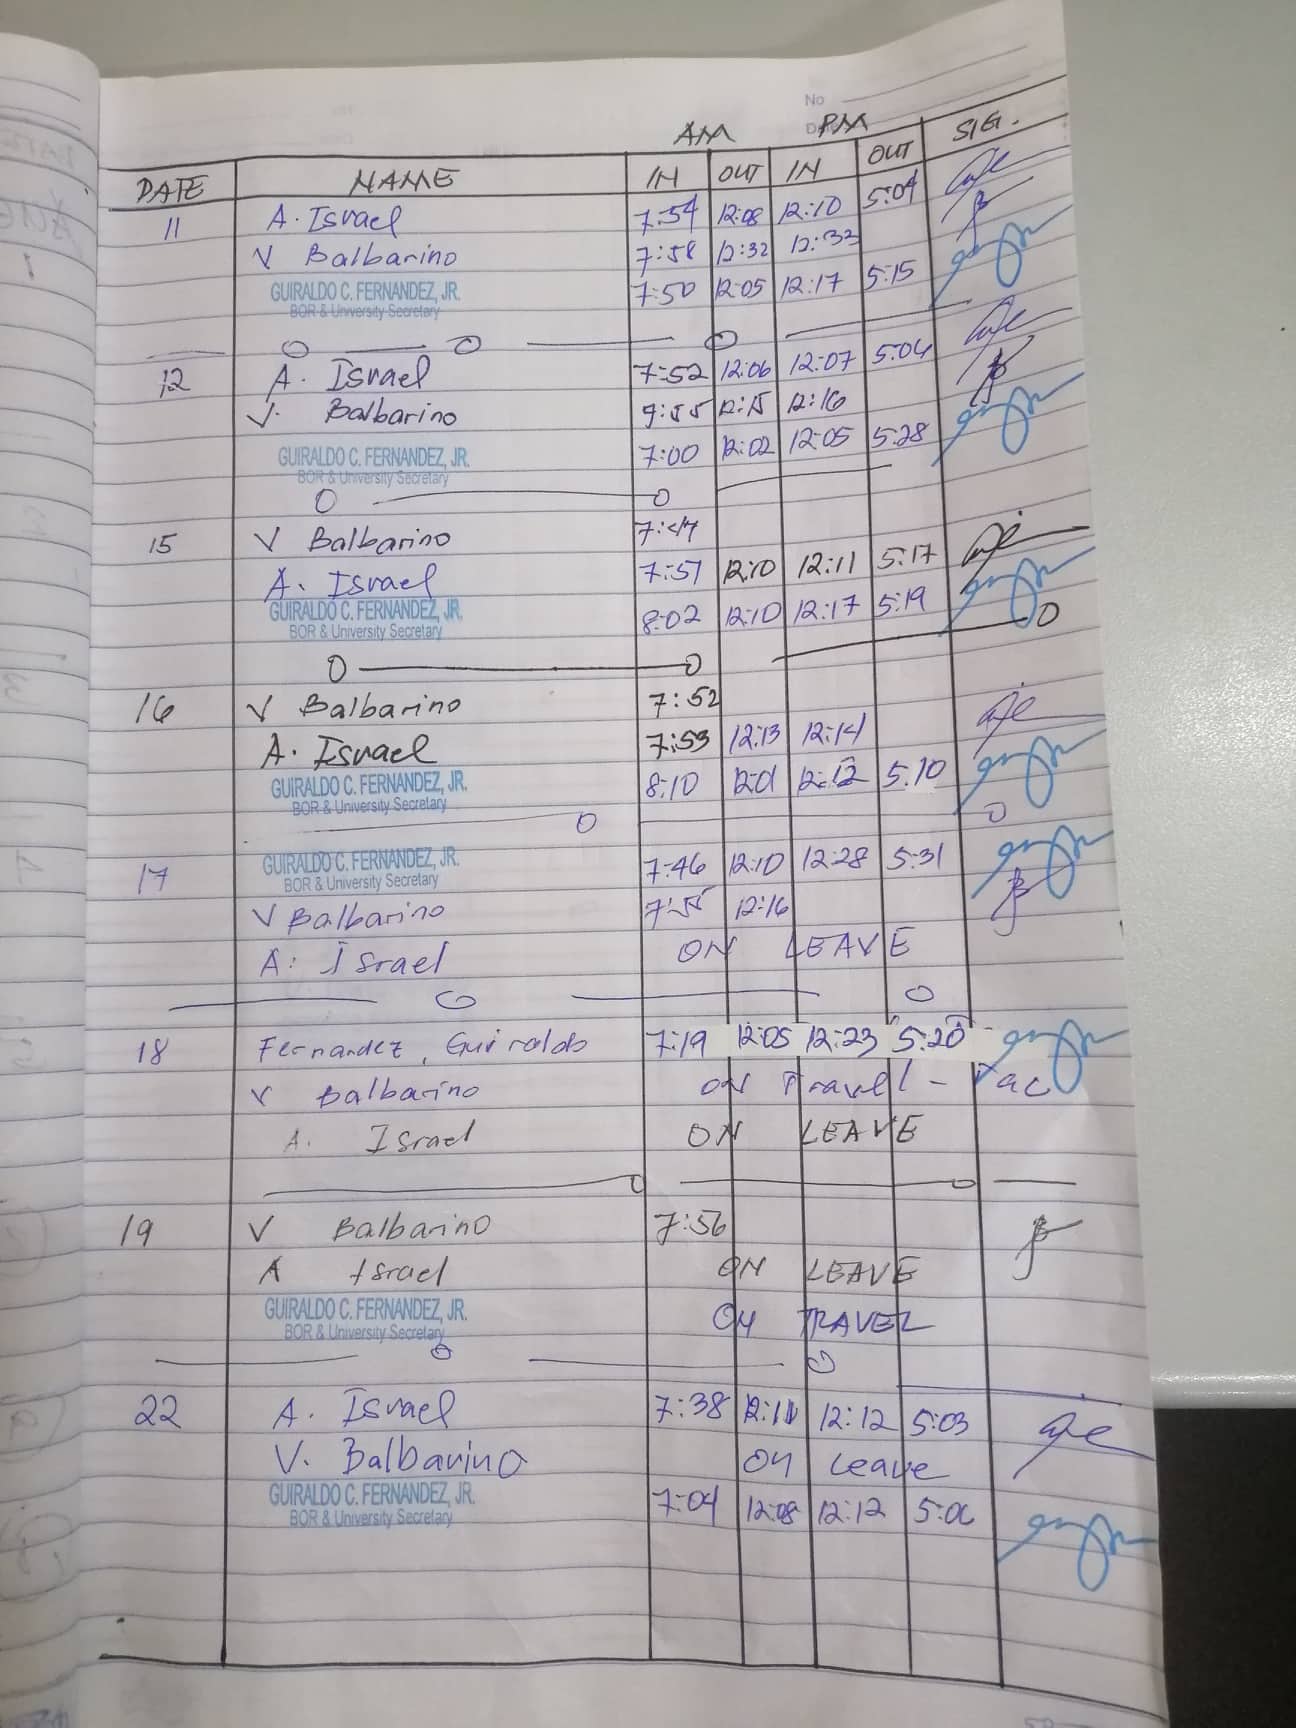 No
AM PM
DATE NAME IN OUT IN OUT SIG.
11 A. Israel 7:54 12:08 12:10 5:04
V Balbarino 7:58 12:32 12:33
GUIRALDO C. FERNANDEZ, JR. 7:50 12:05 12:17 5:15
BOR & University Secretary
12 A. Israel 7:52 12:06 12:07 5:04
V. Balbarino 12:15 12:16
GUIRALDO C. FERNANDEZ, JR. 7:00 12:02 12:05 5:28
BOR & University Secretary
15 V Balbarino 7:47
A. Israel 7:57 12:10 12:11 5:17
GUIRALDO C. FERNANDEZ, JR. 8:02 12:10 12:17 5:19
BOR & University Secretary
16 V Balbarino 7:52
A. Israel 7:53 12:13 12:14
GUIRALDO C. FERNANDEZ, JR. 8:10 12:01 12:12 5:10
BOR & University Secretary
17 GUIRALDO C. FERNANDEZ, JR. 7:46 12:10 12:28 5:31
BOR & University Secretary
V Balbarino 7:55 12:16
A. Israel ON LEAVE
18 Fernandez, Guiraldo 7:19 12:05 12:23 5:20
V Balbarino ON Travel - Tac
A. Israel ON LEAVE
19 V Balbarino 7:56
A Israel ON LEAVE
GUIRALDO C. FERNANDEZ, JR. ON TRAVEL
BOR & University Secretary
22 A. Israel 7:38 12:11 12:12 5:03
V. Balbarino ON Leave
GUIRALDO C. FERNANDEZ, JR. 7:04 12:08 12:12
BOR & University Secretary